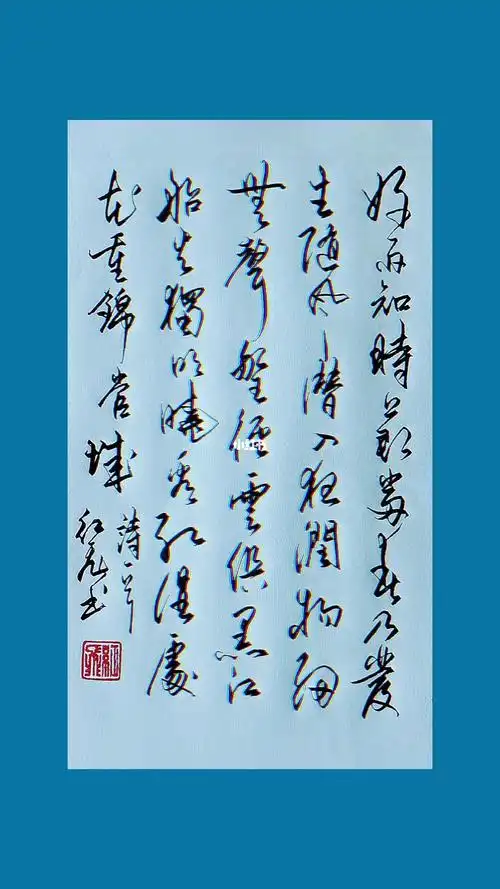 好雨知時節當春乃發
生随風潛入夜潤物細
無聲野徑雲俱黑江
船火獨明曉看紅濕處
花重錦官城
詩一首
书
小红书